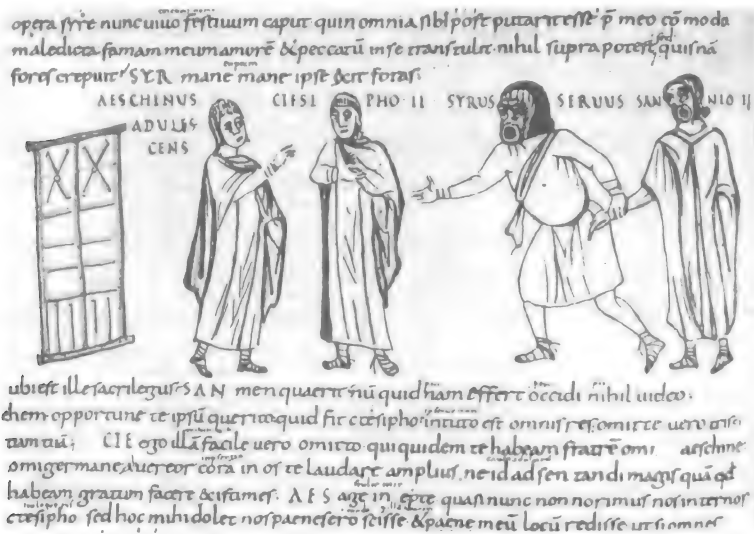 opera syre nunc uiuo festiuum caput quin omnia sibi post putarit esse p̄ meo cōmodo
maledicta famam meum amorē & peccatū in se transtulit. nihil supra potest quisnā
fores crepuit SYR mane mane ipse exit foras
AESCHINUS CTESI PHO II SYRUS SERUUS SAN NIO II
ADULES
CENS
ubi est ille sacrilegus SAN men quaerit nū quid nam effert occidi nihil uideo.
ehem opportune te ipsū querito quid fit ctesipho in tuto est omnis res omitte uero tris
tiam tuā: CTE ego illā facile uero omitto qui quidem te habeam fratrē o mi aeschine
o mi germane a uereor corā in os te laudare amplius. ne id adsentandi magis quā qđ
habeam gratum facere existimes. AES age inepte quasi nunc non norimus nos inter nos
ctesipho sed hoc mihi dolet nos paene sero scisse & paene meū locū redisse ut si omnes